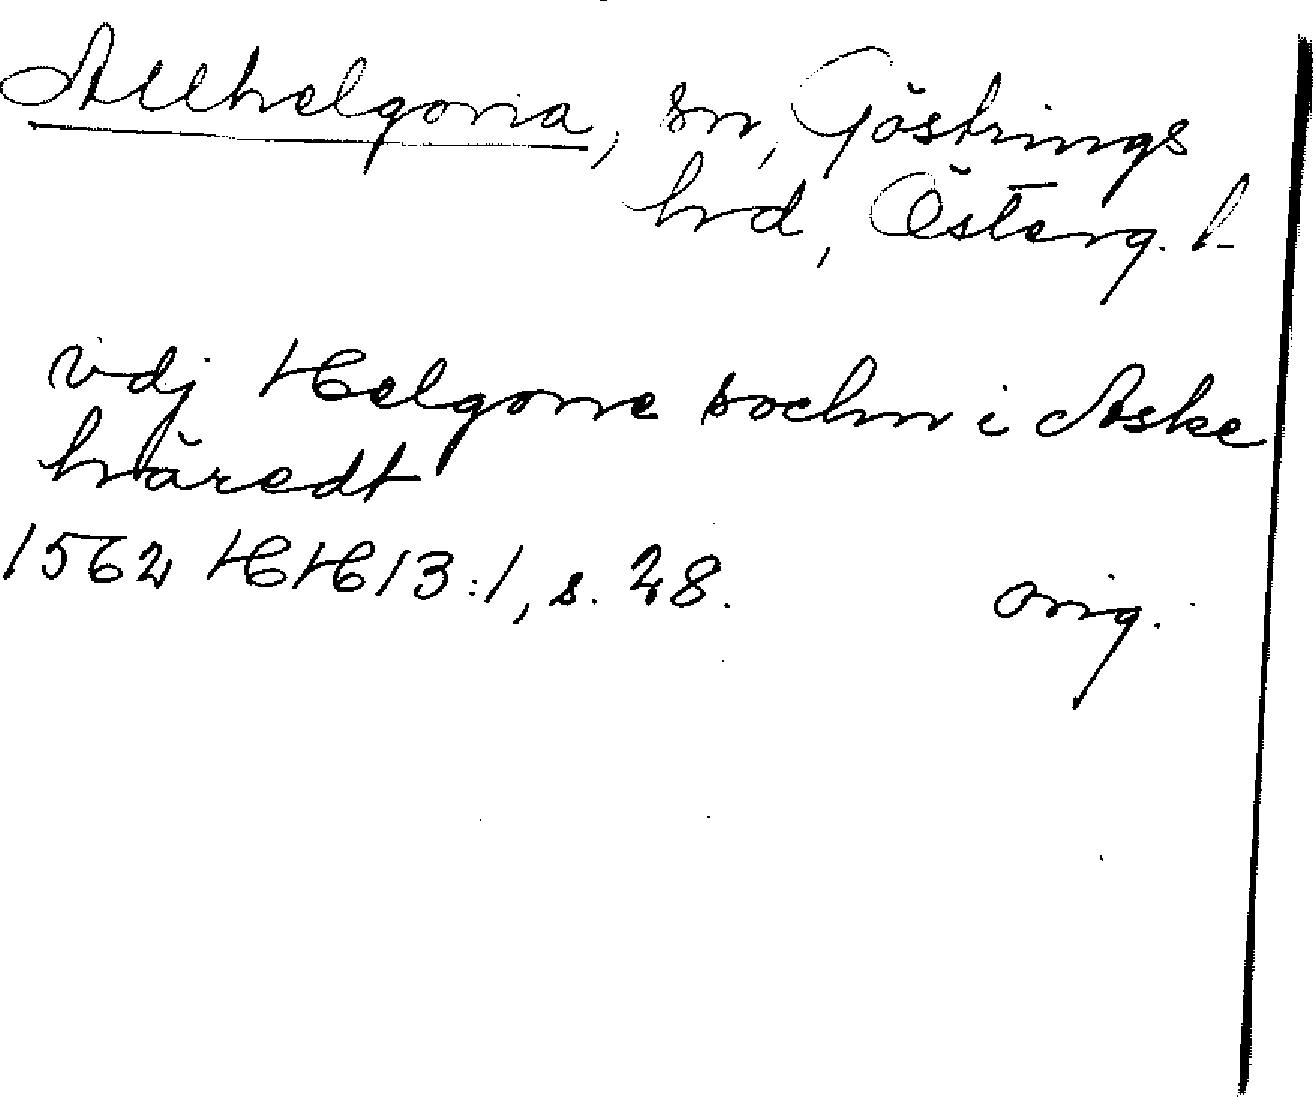 Allhelgona, sn, Göstrings
hd, Österg. l.
vdj Helgone sochn i Aske
häredt
1562 HH 13:1, s. 28.
orig.